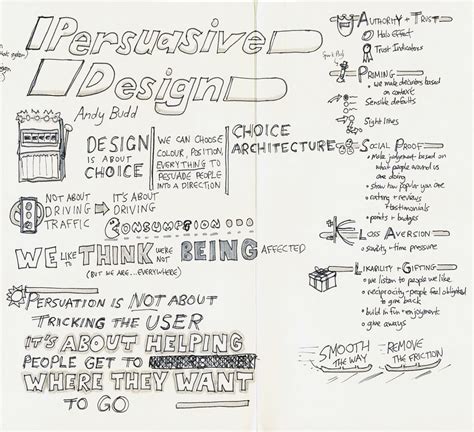 Persuasive
Design
Andy Budd
DESIGN
IS ABOUT
CHOICE
WE CAN CHOOSE
COLOUR, POSITION,
EVERYTHING TO
PERSUADE PEOPLE
INTO A DIRECTION
CHOICE
ARCHITECTURE
NOT ABOUT
DRIVING
TRAFFIC
IT'S ABOUT
DRIVING
CONSUMPTION
WE LIKE TO THINK WE'RE NOT BEING AFFECTED
(BUT WE ARE... EVERYWHERE)
PERSUATION IS NOT ABOUT
TRICKING THE USER
IT'S ABOUT HELPING
PEOPLE GET TO
WHERE THEY WANT
TO GO
AUTHORITY + TRUST
Halo Effect
Trust Indicators
PRIMING
we make decisions based
on context
Sensible defaults
Sight lines
SOCIAL PROOF
• Make judgement based on
what people around us
are doing
• show how popular you are
• rating + reviews
+ testimonials
• points + badges
LOSS AVERSION
• scarcity + time pressure
LIKABILITY + GIFTING
• we listen to people we like
• reciprocity - people feel obligated
to give back
• build in fun + enjoyment
• give aways
SMOOTH
THE WAY
REMOVE
THE FRICTION